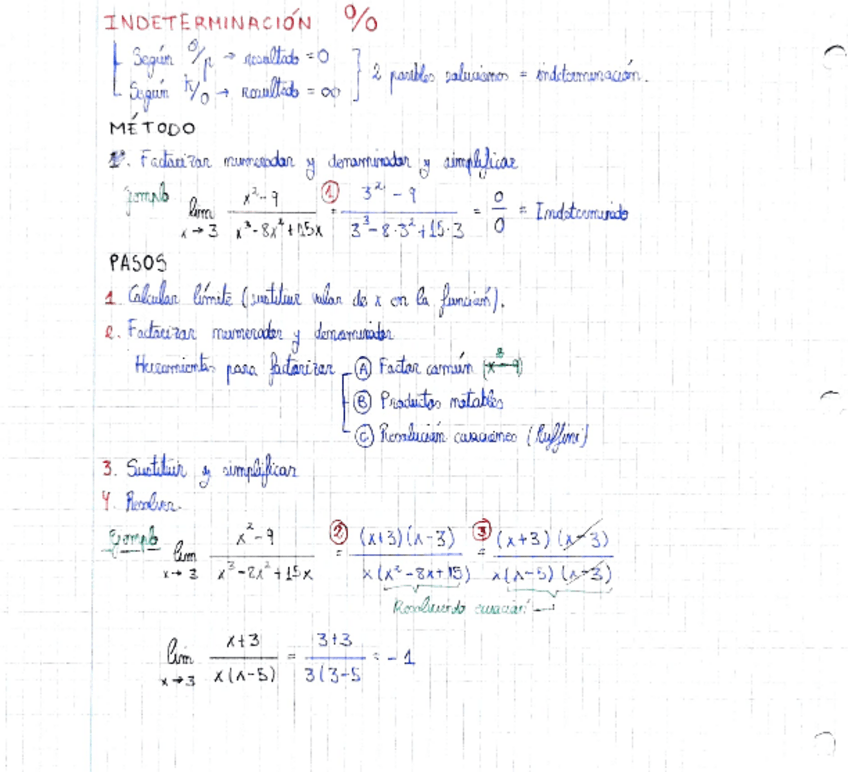 INDETERMINACIÓN 0/0
Según 0/p → resultado = 0
Según k/0 → resultado = ∞
2 posibles soluciones = indeterminación.
MÉTODO
1º. Factorizar numerador y denominador y simplificar
Ejemplo lim x→3 (x²-9)/(x³-8x²+15x) = ① (3²-9)/(3³-8·3²+15·3) = 0/0 = Indeterminado
PASOS
1. Calcular límite (sustituir valor de x en la función).
2. Factorizar numerador y denominador
Herramientas para factorizar
Ⓐ Factor común
Ⓑ Productos notables
Ⓒ Resolución ecuaciones (Ruffini)
3. Sustituir y simplificar
4. Resolver.
Ejemplo lim x→3 (x²-9)/(x³-8x²+15x) = ② (x+3)(x-3)/x(x²-8x+15) = ③ (x+3)(x-3)/x(x-5)(x-3)
Resolviendo ecuación
lim x→3 (x+3)/x(x-5) = 3+3/3(3-5 = -1